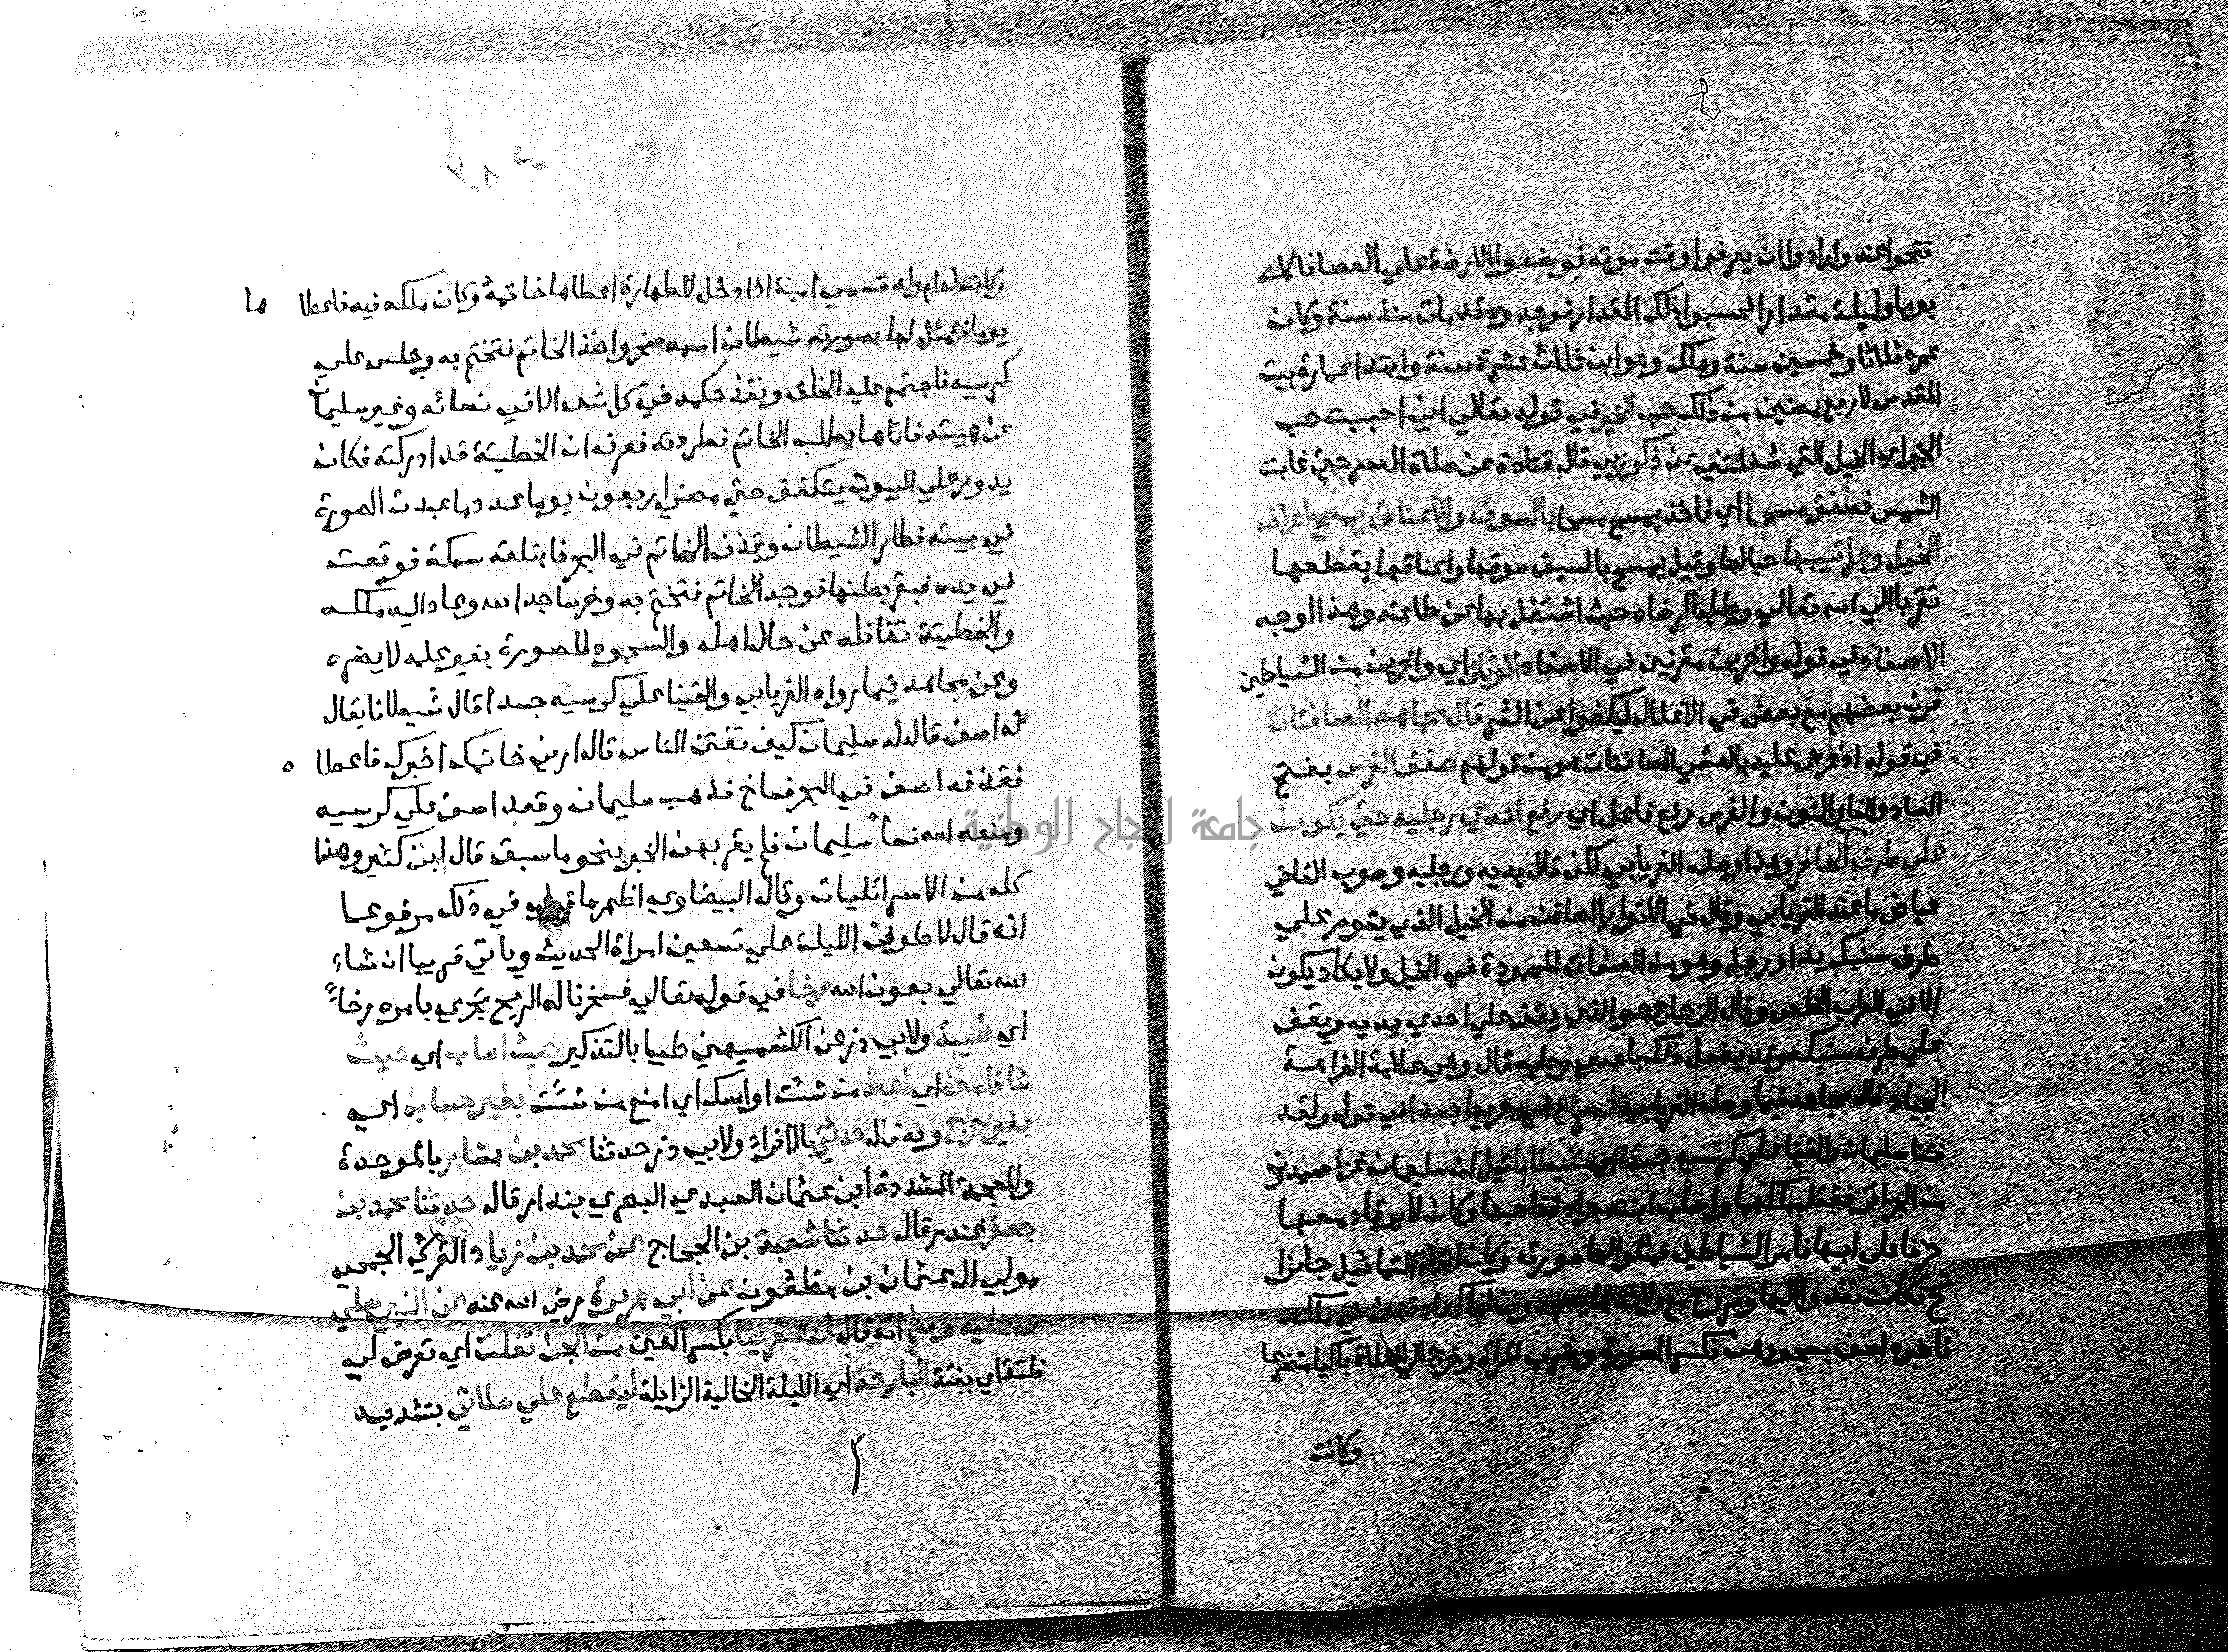 فتحوا عنه وارادوا ان يعرفوا وقت موته فوضعوا الارضة علي العصا فاكلت
يوما وليلة مقدارا فحسبوا ذلك المقدار فوجدوه قد مات منذ سنة وكان
عمره ثلاثا وخمسين سنة وملك وهو ابن ثلاث عشرة سنة وابتدا عمارة بيت
المقدس لاربع مضين من ملكه حب الخير في قوله تعالي اني احببت حب
الخير اي الخيل التي شغلتني عن ذكر ربي قال قتادة عن صلاة العصر حتي غابت
الشمس فطفق مسحا اي فاخذ يمسح مسحا بالسوق والاعناق يمسح اعراف
الخيل وعراقيبها حبا لها وقيل يمسح بالسيف سوقها واعناقها يقطعها
تقربا الي الله تعالي وطلبا لرضاه حيث اشتغل بها عن طاعته وهذا اوجه
الاصفاد في قوله واخرين مقرنين في الاصفاد الوثاق اي واخرين من الشياطين
قرن بعضهم مع بعض في الاغلال ليكفوا عن الشر قال مجاهد الصافنات
في قوله اذ عرض عليه بالعشي الصافنات هو من قولهم صفن الفرس بفتح
الصاد والفا والنون والفرس رفع فاعل اي رفع احدي رجليه حتي يكون
علي طرف الحافر وهذا وصله الفريابي لكن قال يديه ورجليه وصوب القاضي
عياض ما عند الفريابي وقال في الانوار الصافن من الخيل الذي يقوم علي
طرف سنبك يد او رجل وهو من الصفات المحمودة في الخيل ولا يكاد يكون
الا في العراب الخلص وقال الزجاج هو الذي يقف علي احدي يديه ويقف
علي طرف سنبكه وقد يفعل ذلك باحدي رجليه قال وهي علامة الفراهة
الجياد قال مجاهد فيما وصله الفريابي السراع في جريها جسدا في قوله ولقد
فتنا سليمان والقينا علي كرسيه جسدا اي شيطانا قيل ان سليمان غزا صيدون
من الجزائر فقتل ملكها واصاب ابنته جرادة فاحبها وكان لا يرقا دمعها
حزنا علي ابيها فامر الشياطين فمثلوا لها صورته وكان اتخاذ التماثيل جايزا
ح فكانت تغدو اليها وتروح مع ولائدها يسجدون لها كعادتهن في ملكه
فاخبره اصف بسجودهن فكسر الصورة وضرب المراة وخرج الي الفلاة باكيا متضرعا
وكانت
وكانت له ام ولد تسمي امينة اذا دخل للطهارة اعطاها خاتمه وكان ملكه فيه فاعطا ها
يوما فتمثل لها بصورته شيطان اسمه صخر واخذ الخاتم فتختم به وجلس علي
كرسيه فاجتمع عليه الخلق ونفذ حكمه في كل شي الا في نسائه وغير سليمان
عن هيئته فاتاها يطلب الخاتم فطردته فعرف ان الخطيئة قد ادركته فكان
يدور علي البيوت يتكفف حتي مضي اربعون يوما عدد ما عبدت الصورة
في بيته فطار الشيطان وقذف الخاتم في البحر فابتلعته سمكة فوقعت
في يده فبقر بطنها فوجد الخاتم فتختم به وخر ساجدا لله وعاد اليه ملكه
والخطيئة تغافله عن حال اهله والسجود للصورة بغير علمه لا يضره
وعن مجاهد فيما رواه الفريابي والقينا علي كرسيه جسدا قال شيطانا يقال
له اصف قال له سليمان كيف تفتن الناس قال ارني خاتمك اخبرك فاعطا ه
فقذفه اصف في البحر فساخ فذهب سليمان وقعد اصف علي كرسيه
ومنعه الله نساء سليمان فلم يقربهن الخبر بنحو ما سبق قال ابن كثير وهذا
كله من الاسرائليات وقال البيضاوي اظهر ما قيل فيه في ذلك مرفوعا
انه قال لاطوفن الليلة علي تسعين امراة الحديث وياتي قريبا ان شاء
الله تعالي بعون الله رخا في قوله تعالي فسخرنا له الريح تجري بامره رخاءً
اي طيبة ولابي ذر عن الكشميهني طيبا بالتذكير حيث اصاب اي حيث
شا فامنن اي اعط من شئت او امسك اي امنع من شئت بغير حساب اي
بغير حرج وبه قال حدثني بالافراد ولابي ذر حدثنا محمد بن بشار بالموحدة
والمعجمة المشددة ابن عثمان العبدي البصري بندار قال حدثنا محمد بن
جعفر غندر قال حدثنا شعبة بن الحجاج عن محمد بن زياد القرشي الجمحي
مولي ال عثمان بن مظعون عن ابي هريرة رضي الله عنه عن النبي صلي
الله عليه وسلم انه قال ان عفريتا بكسر العين من الجن تفلت اي تعرض لي
فلتة اي بغتة البارحة اي الليلة الخالية الزايلة ليقطع علي صلاتي بتشديد
جامعة النجاح الوطنية